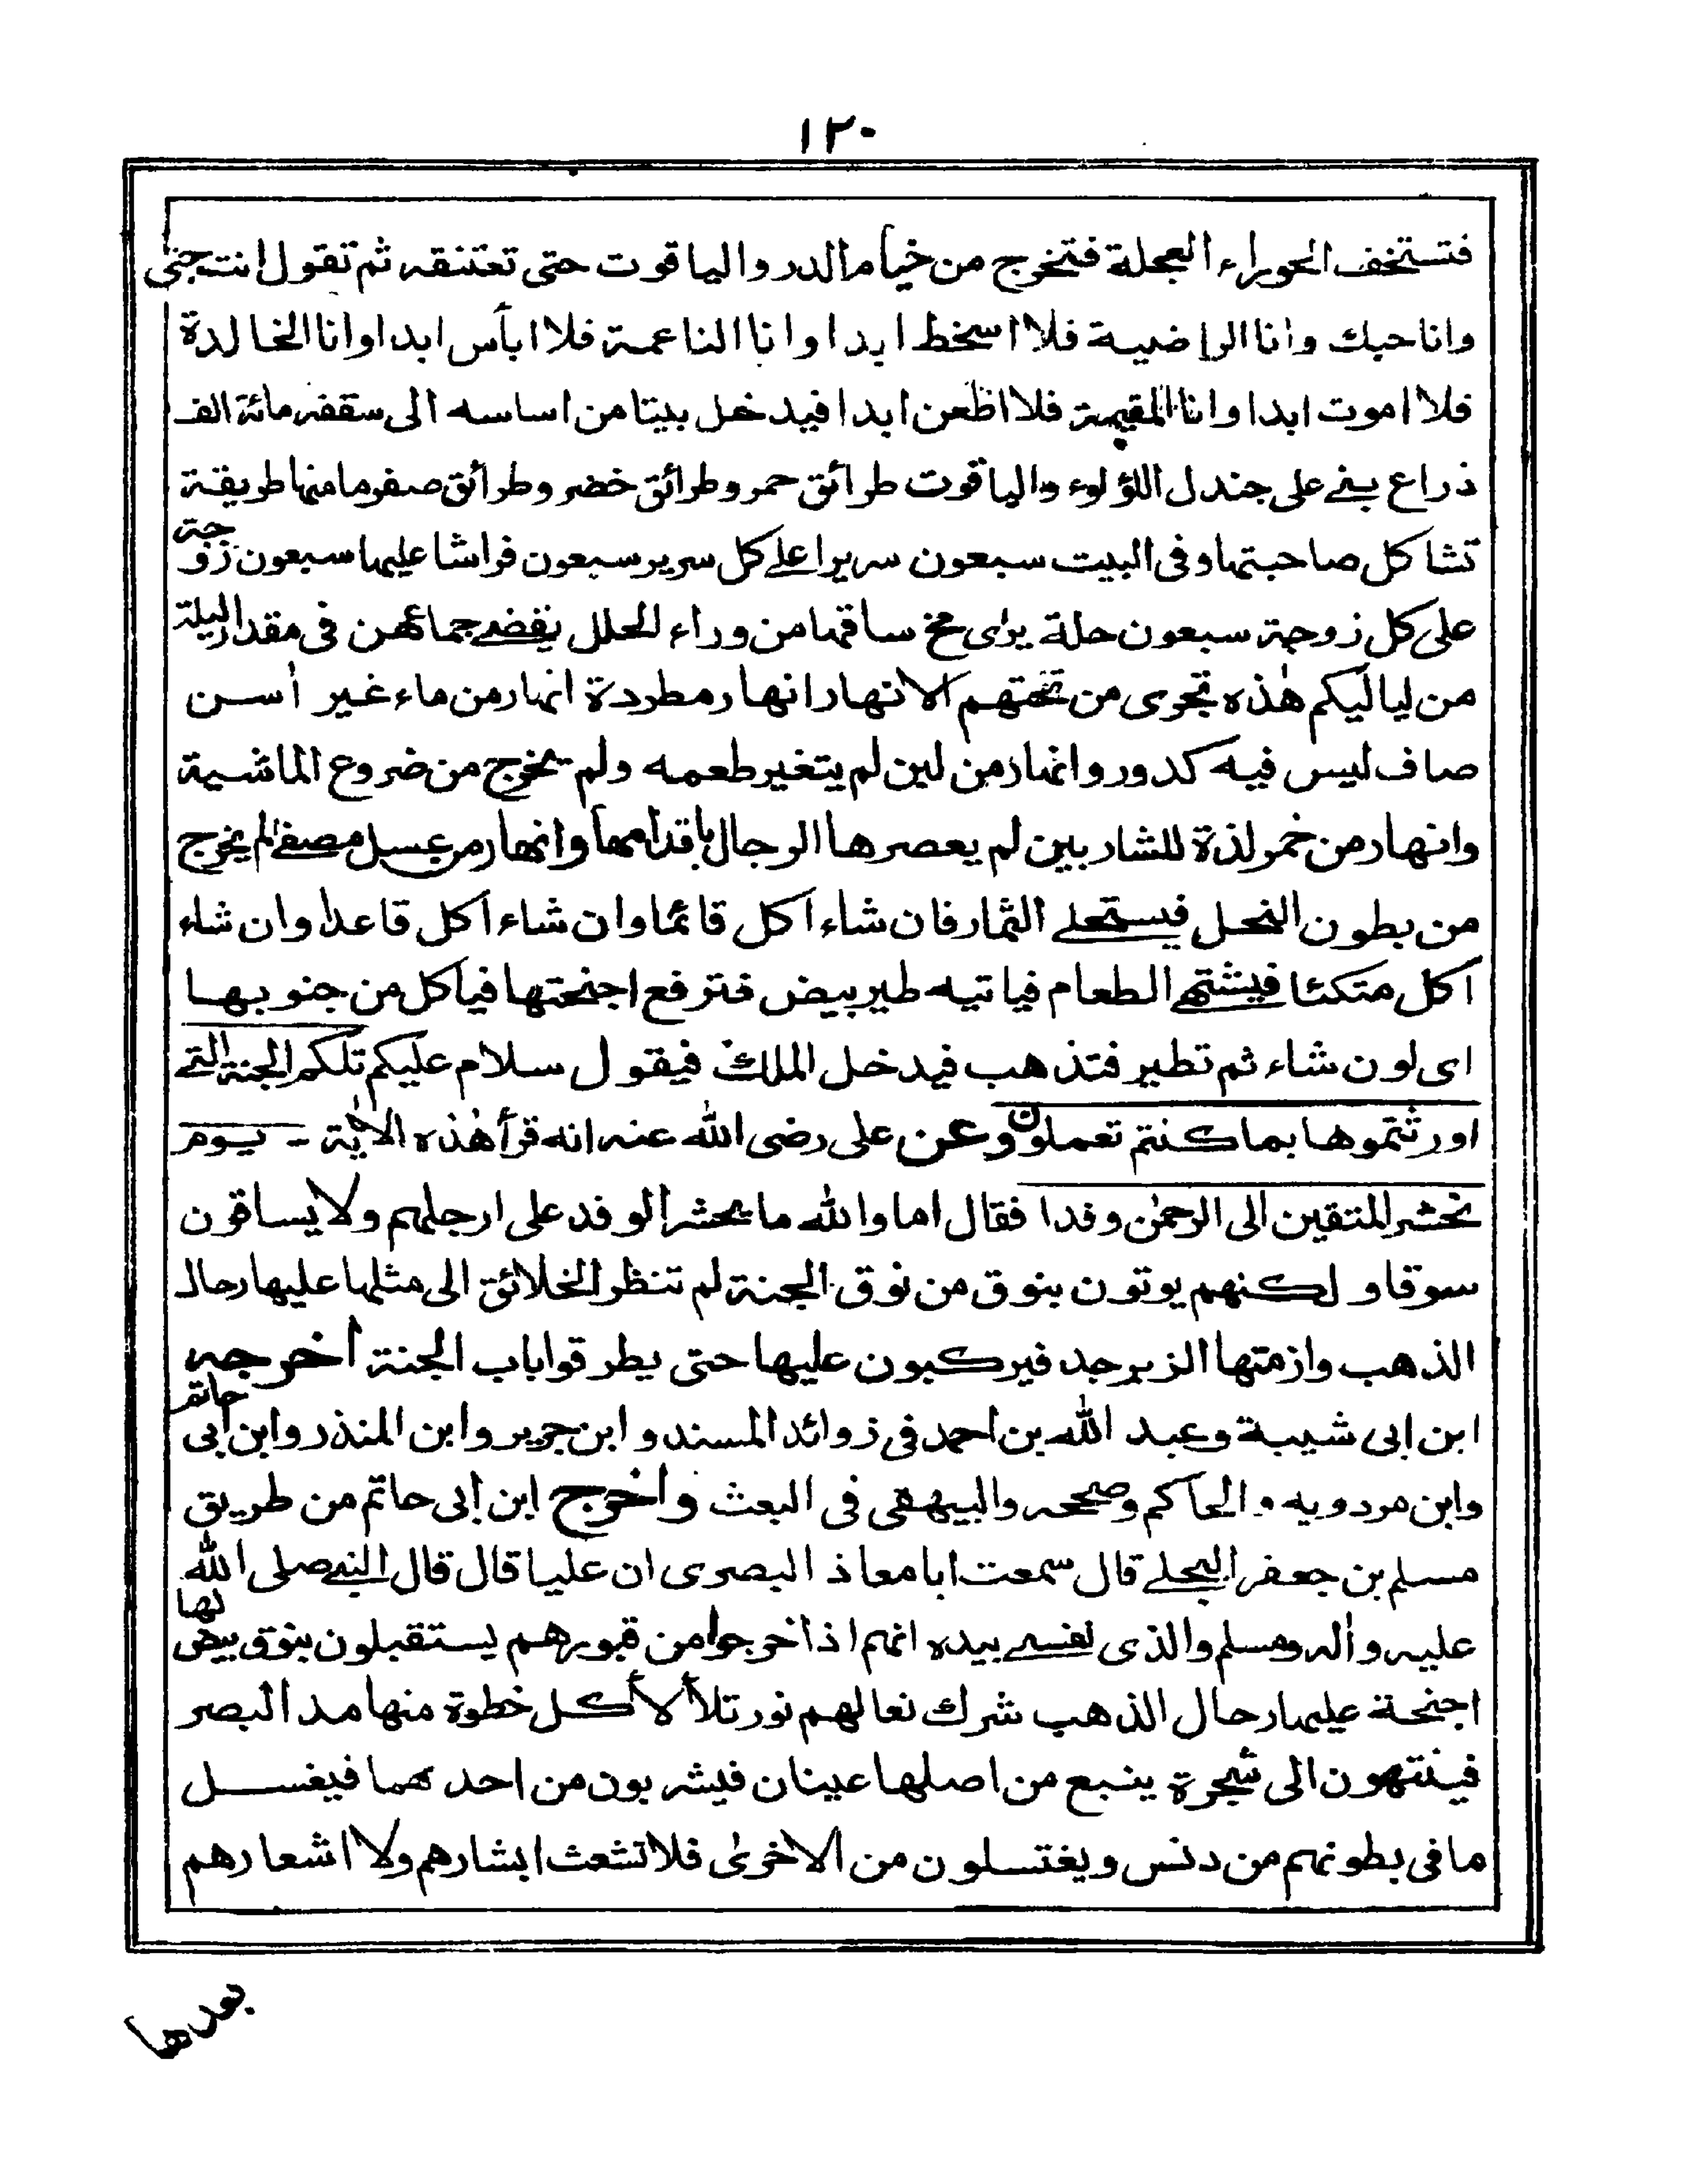 ١٢٠
فتستخف الحوراء العجلة فتخرج من خيام الدر والياقوت حتى تعتنقه ثم تقول انت حبى
وانا حبك وانا الراضية فلا اسخط ابدا وانا الناعمة فلا ابأس ابدا وانا الخالدة
فلا اموت ابدا وانا المقيمة فلا اظعن ابدا فيدخل بيتا من اساسه الى سقفه مائة الف
ذراع بنى على جندل اللؤلوء والياقوت طرائق حمر وطرائق خضر وطرائق صفر ما منها طريقة
تشاكل صاحبتها وفى البيت سبعون سريرا على كل سرير سبعون فراشا عليها سبعون زوجة
على كل زوجة سبعون حلة يرى مخ ساقها من وراء الحلل يقضى جماعهن فى مقدار ليلة
من لياليكم هٰذه تجرى من تحتهم الانهار انهار مطردة انهار من ماء غير أسن
صاف ليس فيه كدور وانهار من لبن لم يتغير طعمه ولم يخرج من ضروع الماشية
وانهار من خمر لذة للشاربين لم يعصرها الرجال باقدامها وانهار من عسل مصفى لم يخرج
من بطون النحل فيستحلى الثمار فان شاء اكل قائما وان شاء اكل قاعدا وان شاء
اكل متكئا فيشتهى الطعام فياتيه طير بيض فترفع اجنحتها فياكل من جنوبها
اى لون شاء ثم تطير فتذهب فيدخل الملك فيقول سلام عليكم تلكم الجنة التى
اورثتموها بما كنتم تعملون وعن على رضى الله عنه انه قرأ هٰذه الاٰية - يوم
نحشر المتقين الى الرحمٰن وفدا فقال اما والله ما يحشر الوفد على ارجلهم ولا يساقون
سوقا ولكنهم يوتون بنوق من نوق الجنة لم تنظر الخلائق الى مثلها عليها رحال
الذهب وازمتها الزبرجد فيركبون عليها حتى يطرقوا باب الجنة أخرجه
ابن ابى شيبة وعبد الله بن احمد فى زوائد المسند وابن جرير وابن المنذر وابن ابى حاتم
وابن مردويه والحاكم وصححه والبيهقى فى البعث وأخرج ابن ابى حاتم من طريق
مسلم بن جعفر البجلى قال سمعت ابا معاذ البصرى ان عليا قال قال النبى صلى الله
عليه واٰله وسلم والذى نفسى بيده انهم اذا خرجوا من قبورهم يستقبلون بنوق بيض لها
اجنحة عليها رحال الذهب شرك نعالهم نور تلألأ كل خطوة منها مد البصر
فينتهون الى شجرة ينبع من اصلها عينان فيشربون من احدهما فيغسل
ما فى بطونهم من دنس ويغتسلون من الاخرىٰ فلا تشعث ابشارهم ولا اشعارهم
بعدها